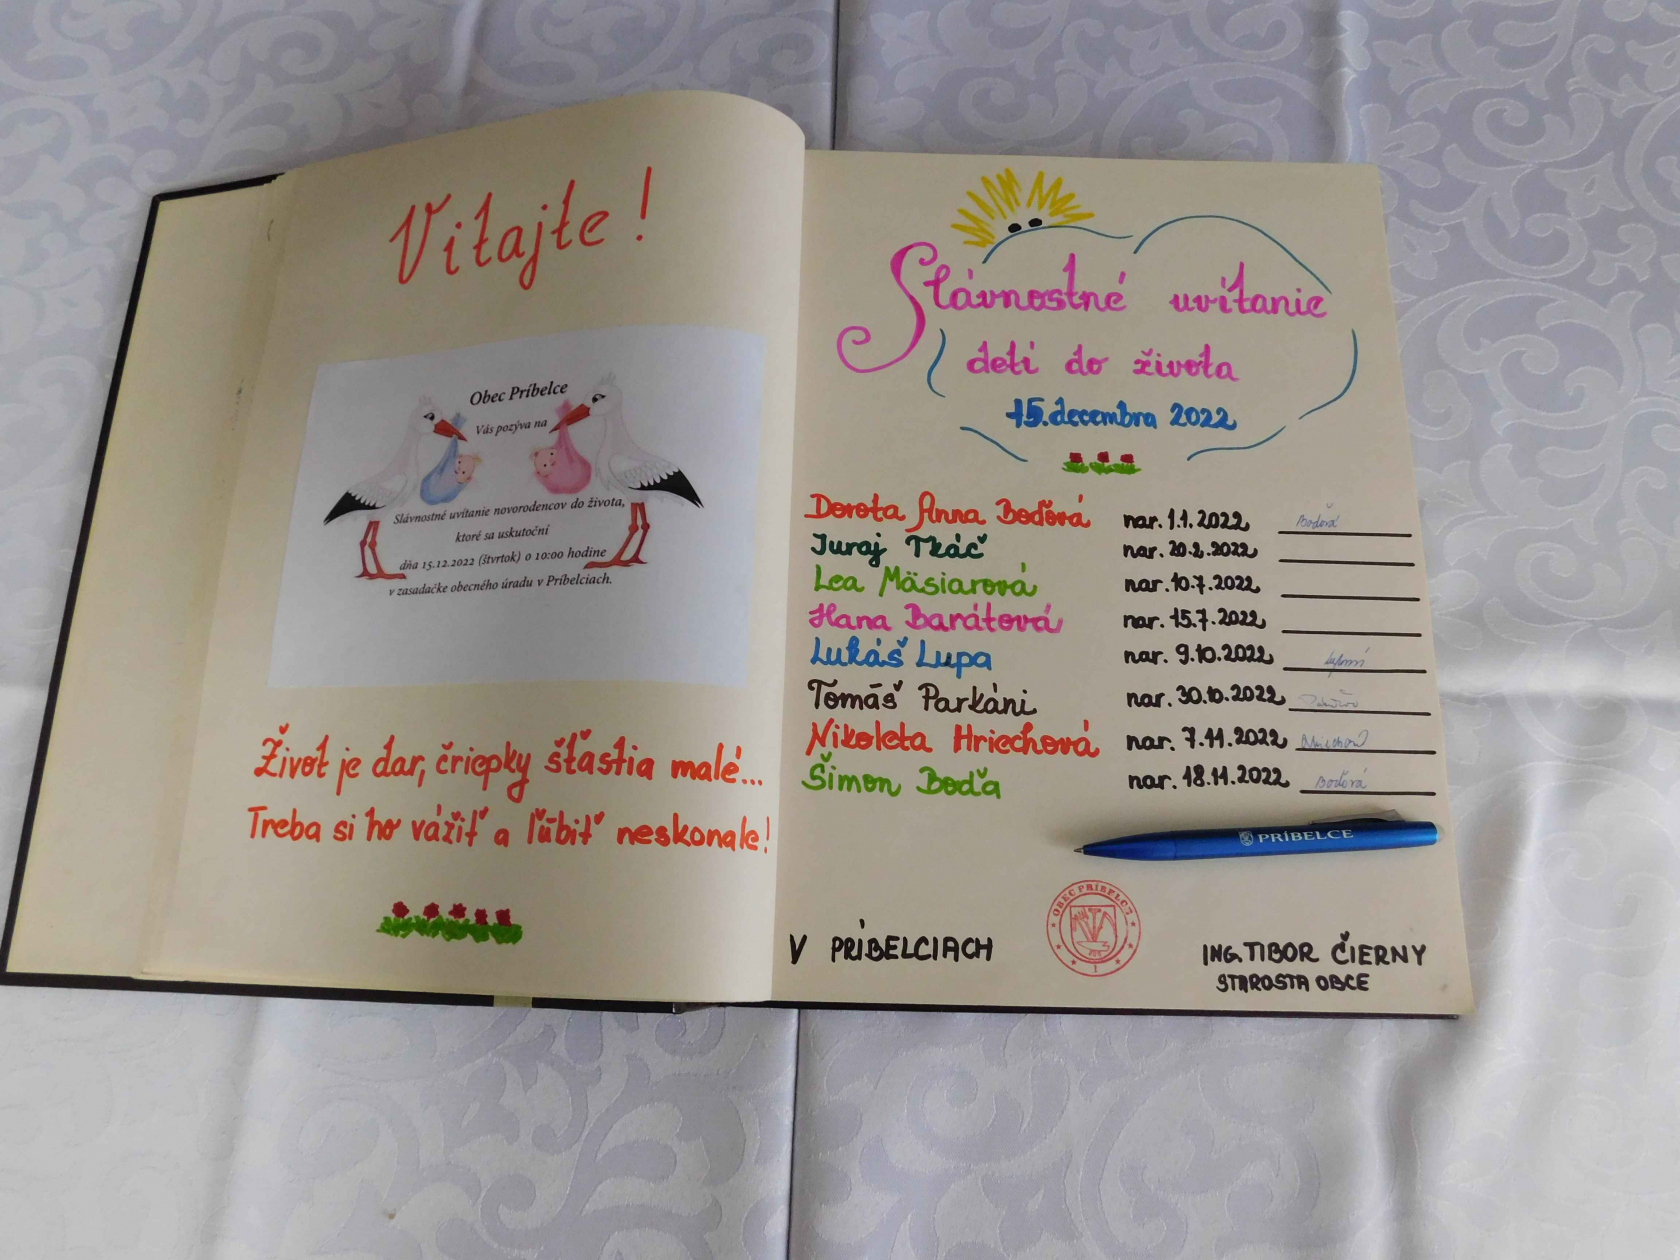 Vitajte!
Obec Príbelce
Vás pozýva na
Slávnostné uvítanie novorodencov do života,
ktoré sa uskutoční
dňa 15.12.2022 (štvrtok) o 10:00 hodine
v zasadačke obecného úradu v Príbelciach.
Život je dar, čriepky šťastia malé...
Treba si ho vážiť a ľúbiť neskonale!
Slávnostné uvítanie
detí do života
15. decembra 2022
Dorota Anna Boďová nar. 1.1.2022 Boďová
Juraj Tkáč nar. 20.2.2022
Lea Mäsiarová nar. 10.7.2022
Hana Barátová nar. 15.7.2022
Lukáš Lupa nar. 9.10.2022
Tomáš Parkáni nar. 30.10.2022
Nikoleta Hriechová nar. 7.11.2022 Hriechová
Šimon Boďa nar. 18.11.2022 Boďová
PRÍBELCE
OBEC PRÍBELCE
1
V PRÍBELCIACH
ING. TIBOR ČIERNY
STAROSTA OBCE